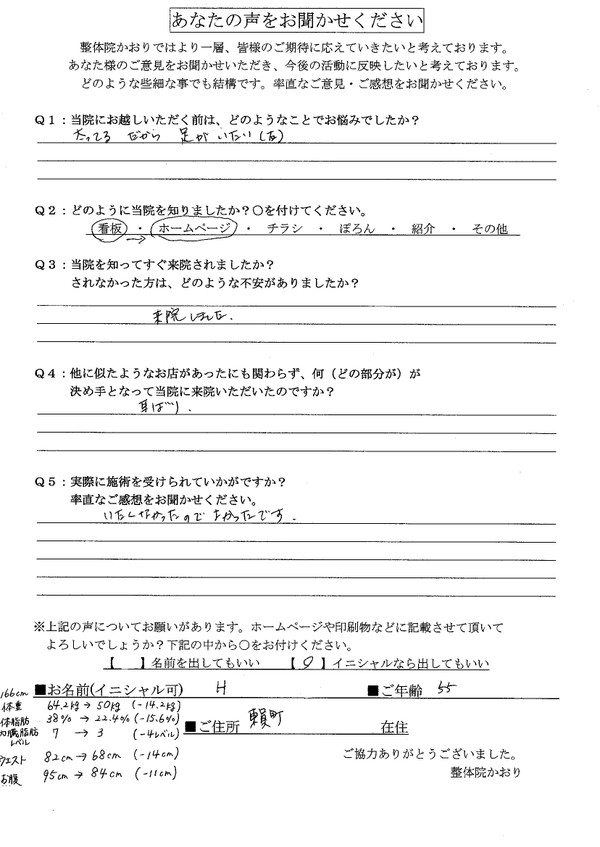 あなたの声をお聞かせください
整体院かおりではより一層、皆様のご期待に応えていきたいと考えております。
あなた様のご意見をお聞かせいただき、今後の活動に反映したいと考えております。
どのような些細な事でも結構です。率直なご意見・ご感想をお聞かせください。
Q1：当院にお越しいただく前は、どのようなことでお悩みでしたか？
太ってる だから 足が いたい(左)
Q2：どのように当院を知りましたか？〇を付けてください。
看板 ・ ホームページ ・ チラシ ・ ぽろん ・ 紹介 ・ その他
Q3：当院を知ってすぐ来院されましたか？
されなかった方は、どのような不安がありましたか？
来院しました.
Q4：他に似たようなお店があったにも関わらず、何（どの部分が）が
決め手となって当院に来院いただいたのですか？
耳ばり.
Q5：実際に施術を受けられていかがですか？
率直なご感想をお聞かせください。
いたくなかったので よかったです.
※上記の声についてお願いがあります。ホームページや印刷物などに記載させて頂いて
よろしいでしょうか？下記の中から〇をお付けください。
【 】名前を出してもいい 【〇】イニシャルなら出してもいい
■お名前(イニシャル可) H ■ご年齢 55
■ご住所 瀬町 在住
166cm
体重 64.2kg → 50kg (-14.2kg)
体脂肪 38% → 22.4% (-15.6%)
内臓脂肪レベル 7 → 3 (-4レベル)
ウエスト 82cm → 68cm (-14cm)
お腹 95cm → 84cm (-11cm)
ご協力ありがとうございました。
整体院かおり